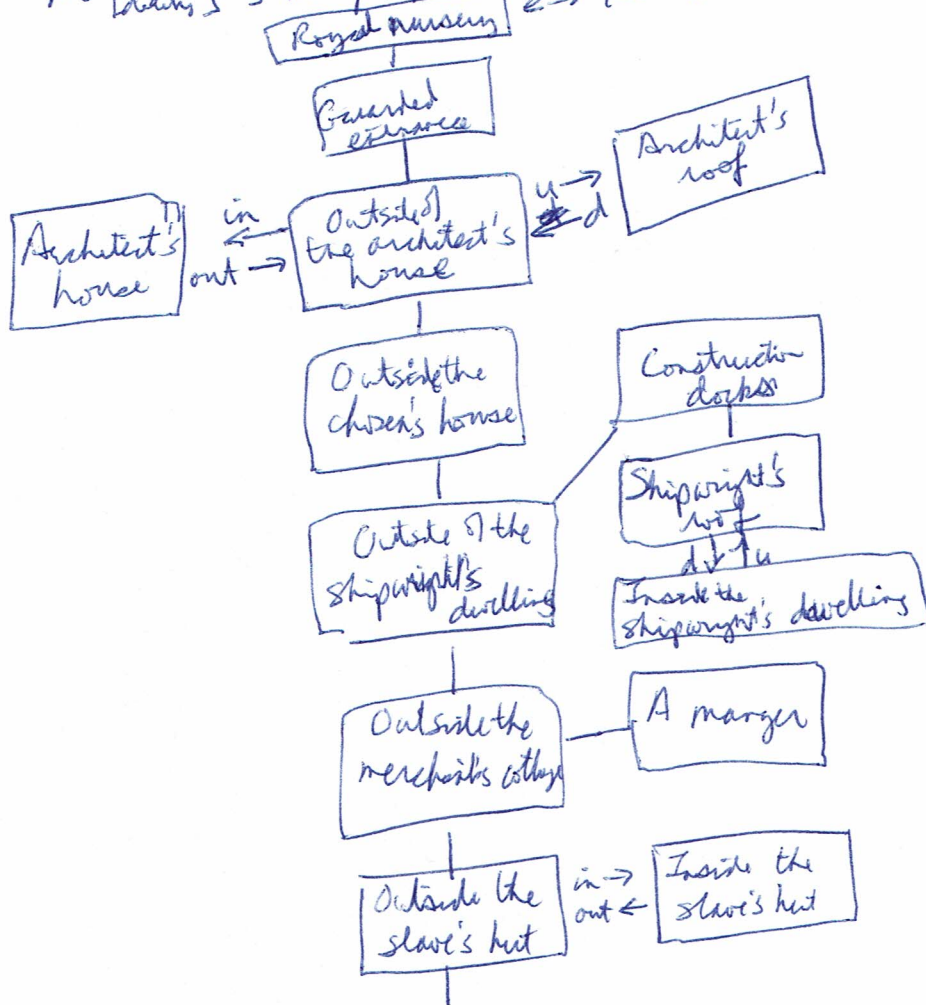 Royal nursery
Guarded
entrance
Architect's
roof
u → d
in
out →
Architect's
house
Outside of
the architect's
house
Outside the
chosen's house
Construction
docks
Shipwright's
roof
d u
Inside the
shipwright's dwelling
Outside of the
shipwright's
dwelling
Outside the
merchant's cottage
A manger
Outside the
slave's hut
in →
out ←
Inside the
slave's hut